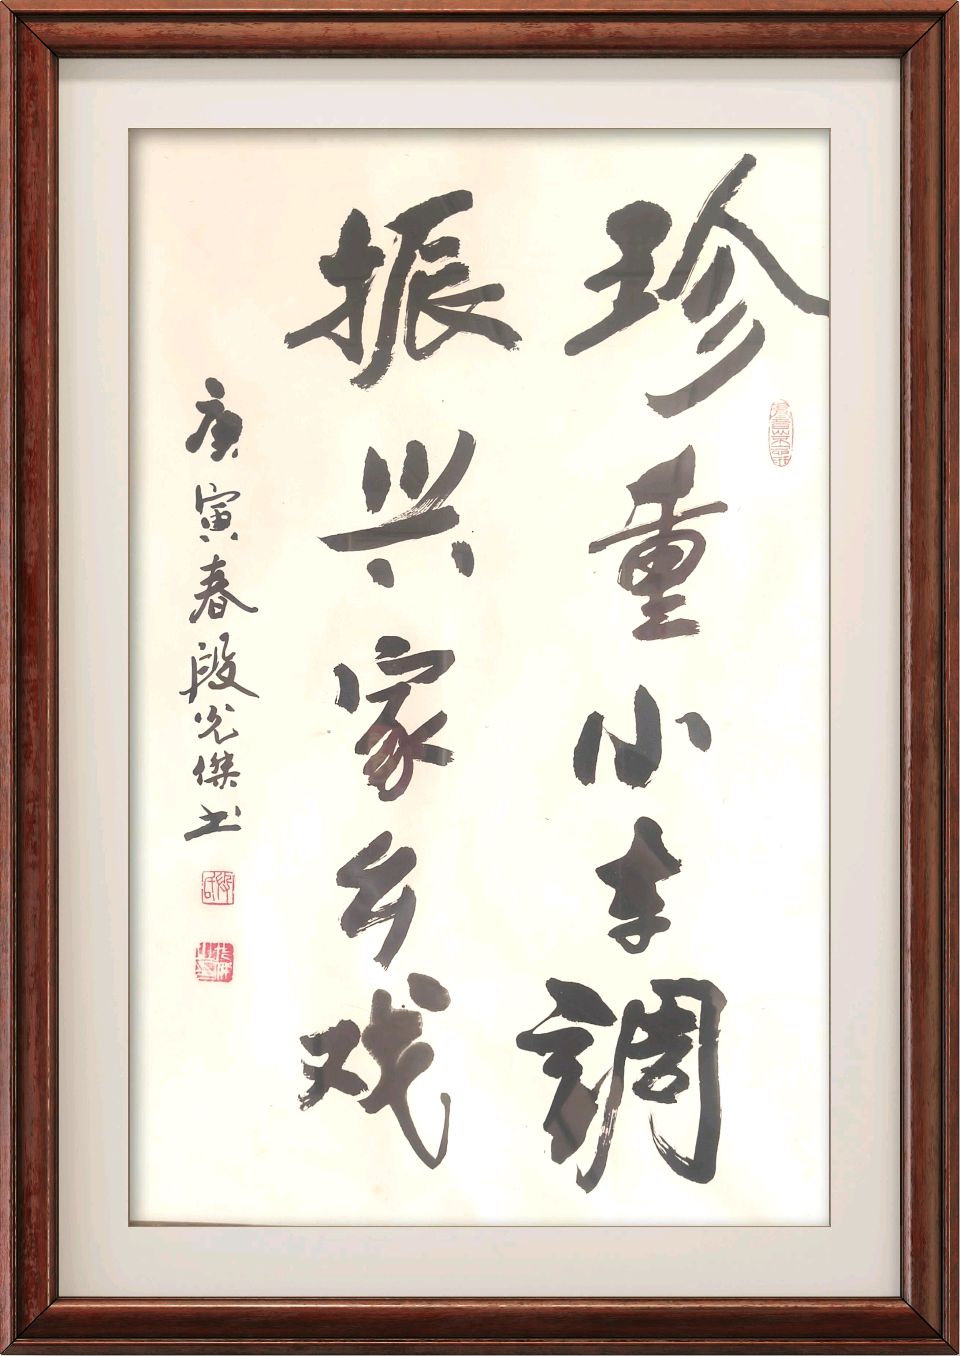 珍重小李調
振兴家乡戏
庚寅春段光傑书